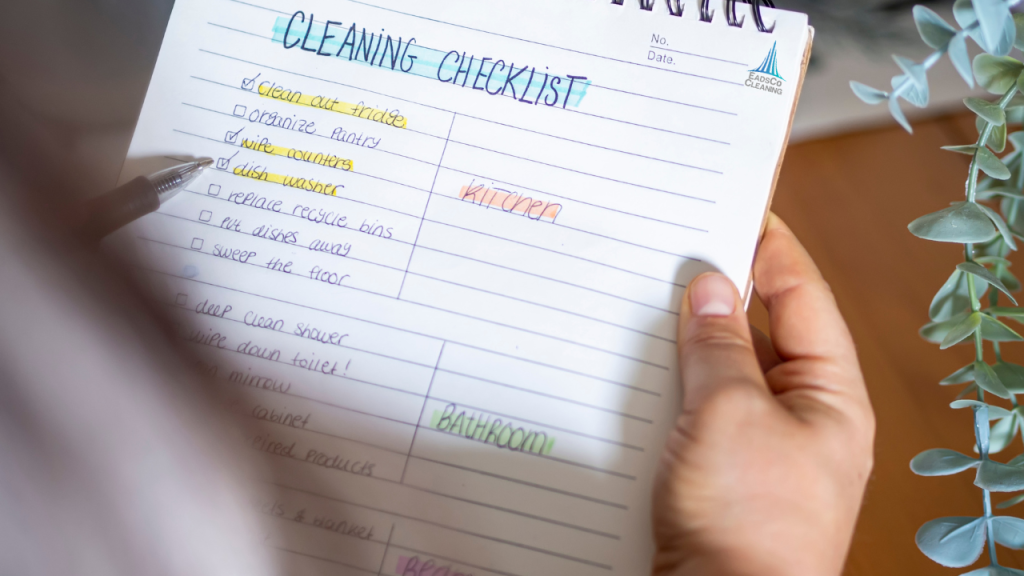 No.
Date.
EADSCO
CLEANING
CLEANING CHECKLIST
clean out fridge
organize pantry
wipe counters
dish washer
replace recycle bins
put dishes away
sweep the floor
KITCHEN
deep clean shower
wipe down toilet!
mirrow
cabinet
products
BATHROOM
& wanket